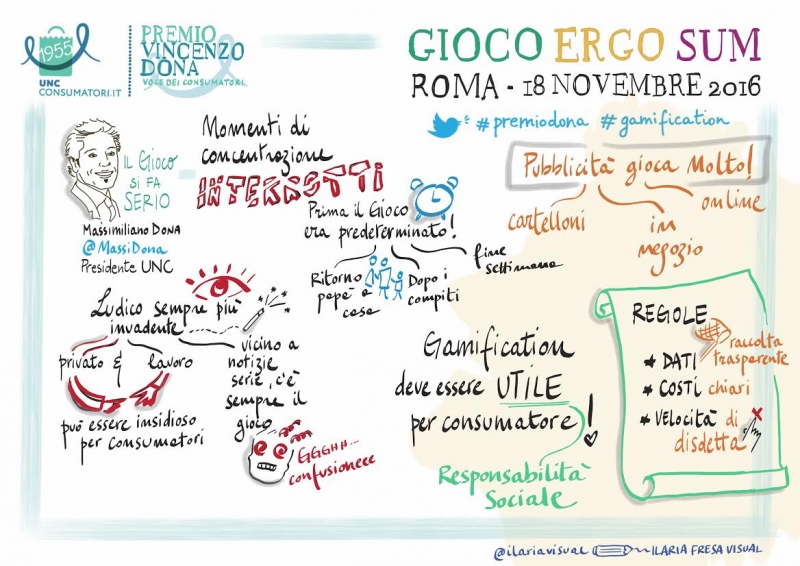 1955
UNC
CONSUMATORI.IT
PREMIO
VINCENZO
DONA
VOCE DEI CONSUMATORI
GIOCO ERGO SUM
ROMA - 18 NOVEMBRE 2016
#premiodona #gamification
IL GIOCO
SI FA
SERIO
Massimiliano DONA
@MassiDona
Presidente UNC
Momenti di
concentrazione
INTERROTTI
Prima il Gioco
era predeterminato!
Ritorno
papè a
casa
Dopo i
compiti
fine
settimana
Pubblicità gioca Molto!
cartelloni
in
negozio
online
Ludico sempre più
invadente
privato & lavoro
può essere insidioso
per consumatori
vicino a
notizie
serie, c'è
sempre il
gioco
GGGHH...
confusioneee
Gamification
deve essere UTILE
per consumatore!
Responsabilità
Sociale
REGOLE
* DATI raccolta
trasparente
* COSTI chiari
* VELOCITÀ di
disdetta
@ilariavisual ILARIA FRESA VISUAL